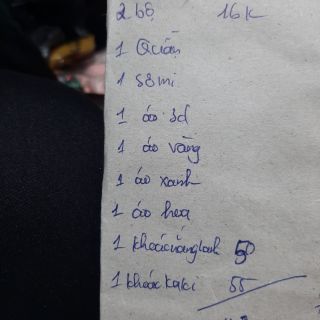 2 bộ 16k
1 Quần
1 sơ mi
1 áo 3d
1 áo vàng
1 áo xanh
1 áo hoa
1 khoác 50
1 khoác kaki 55